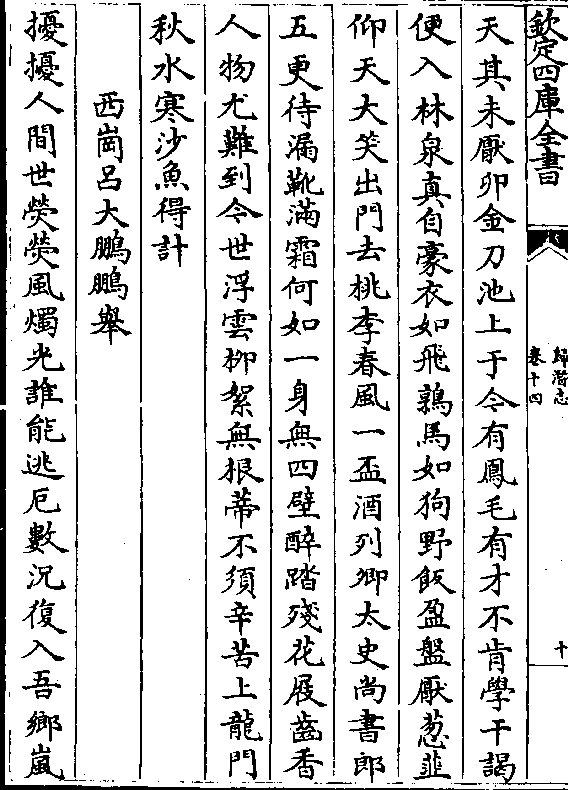 欽定四庫全書
歸潛志
卷十四
十
天其未厭卯金刀池上于今有鳳毛有才不肯學干謁
便入林泉真自豪衣如飛鶉馬如狗野飯盈盤厭葱韮
仰天大笑出門去桃李春風一盃酒列卿太史尚書郎
五更待漏靴滿霜何如一身無四壁醉踏殘花屐齒香
人物尤難到今世浮雲柳絮無根蒂不須辛苦上龍門
秋水寒沙魚得計
西崗呂大鵬鵬舉
擾擾人間世熒熒風燭光誰能逃厄數況復入吾鄉嵐